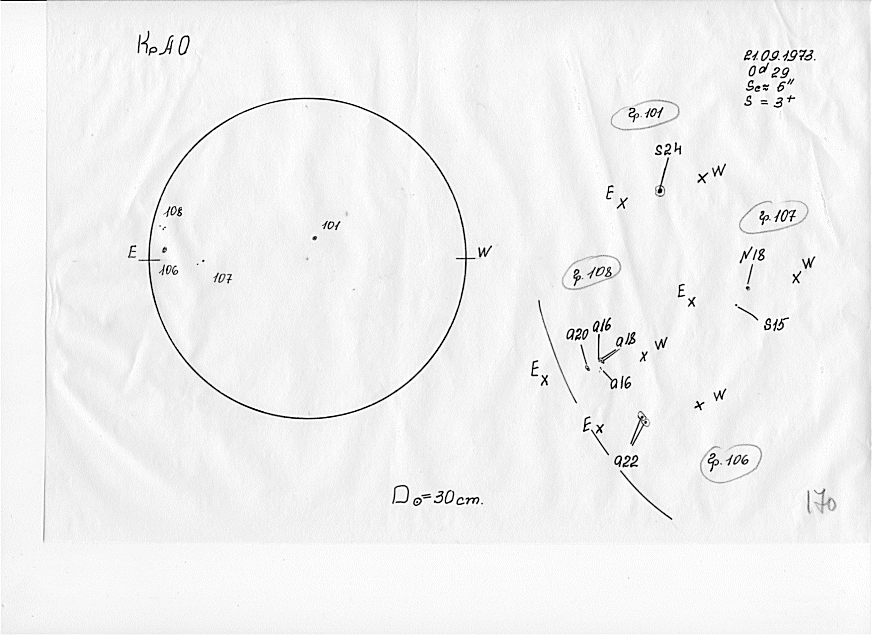 КрАО
21.09.1973.
0d 29
Sc≈ 6"
S = 3+
гр. 101
S24
E x
x W
108
E
106
107
101
W
гр. 107
N18
E x
x W
S15
гр. 108
a20
a16
a18
x W
E x
a16
E x
x W
a22
гр. 106
D⊙=30cm.
170